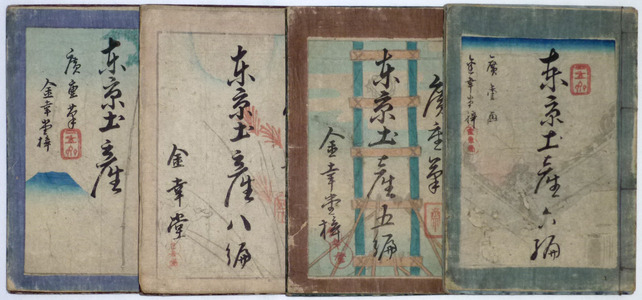 东京土産
廣重筆
金幸堂梓
东京土産八編
金幸堂
廣重筆
东京土産五編
金幸堂梓
东京土産六編
廣重画
金幸堂梓